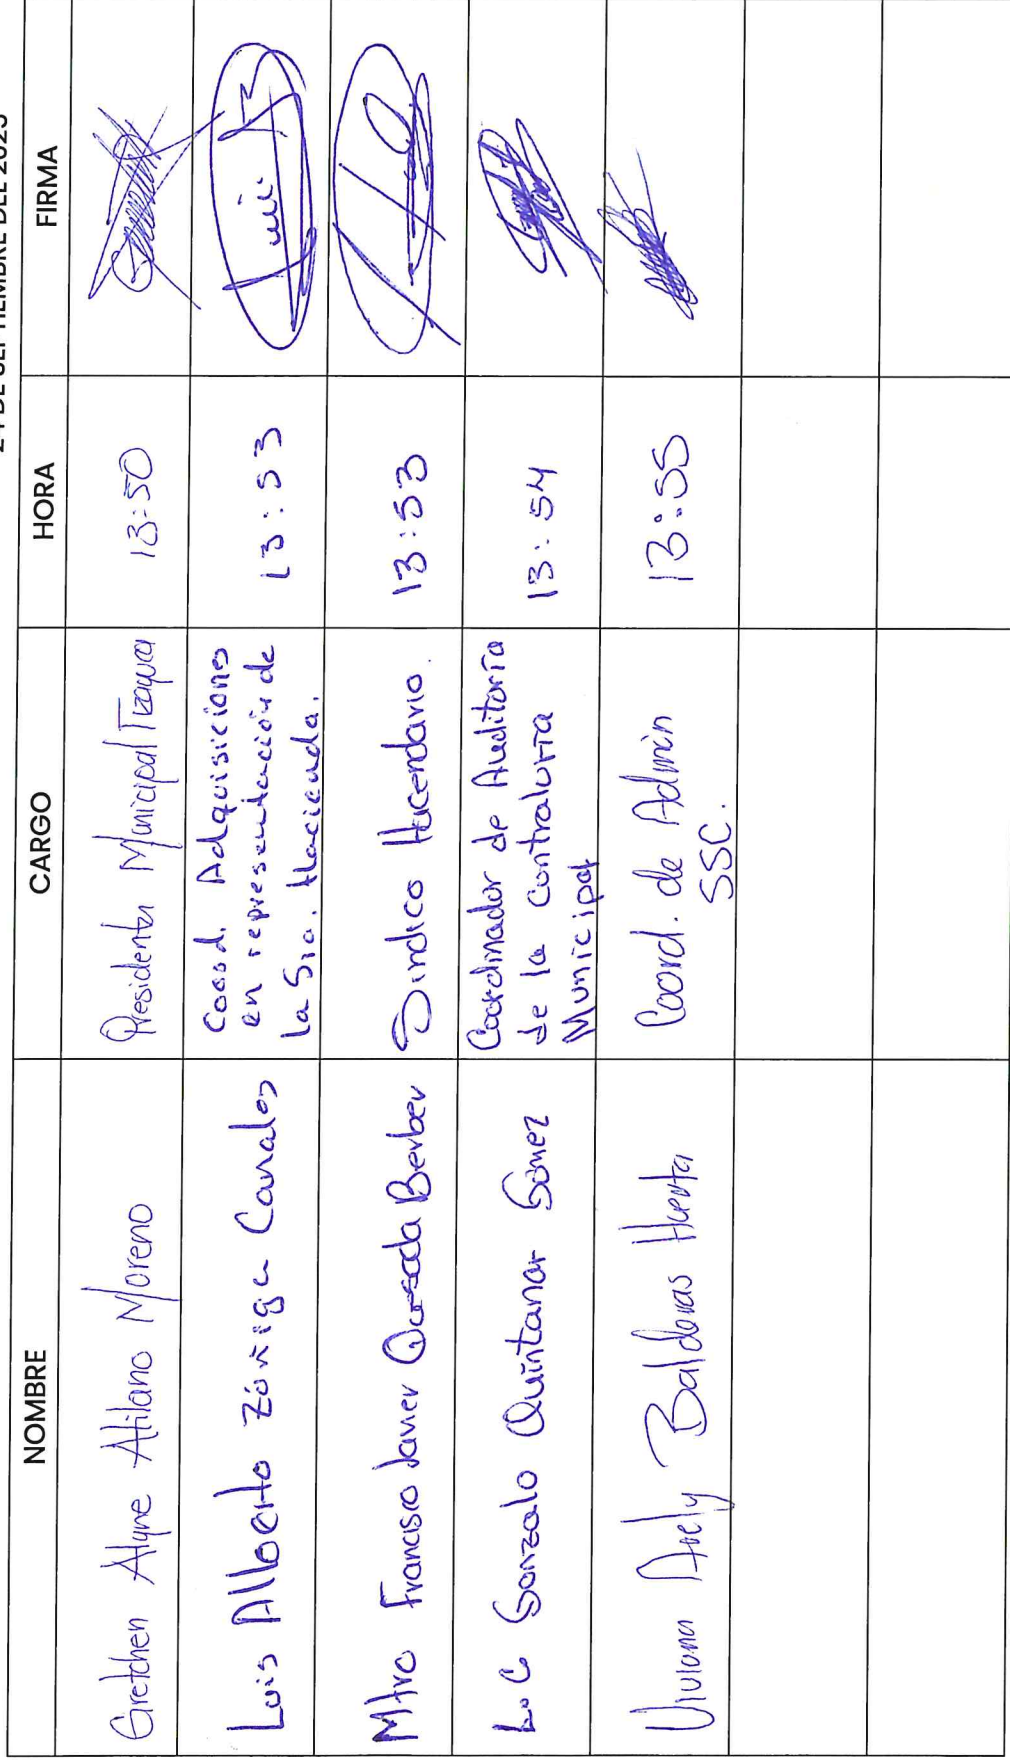 DEL 2025
NOMBRE CARGO HORA FIRMA
Gretchen Alyne Atilano Moreno Presidenta Municipal Tizayuca 13:50
Luis Alberto Zúñiga Canales Coord. Adquisiciones
en representación de
la Sria. Hacienda. 13:53
Mtro Francisco Javier Quesada Berber Sindico Hacendario. 13:53
L.C Gonzalo Quintanar Gómez Coordinador de Auditoría
de la Contraluría
Municipal 13:54
Viviana Arely Balderas Huerta Coord. de Admin
SSC. 13:55